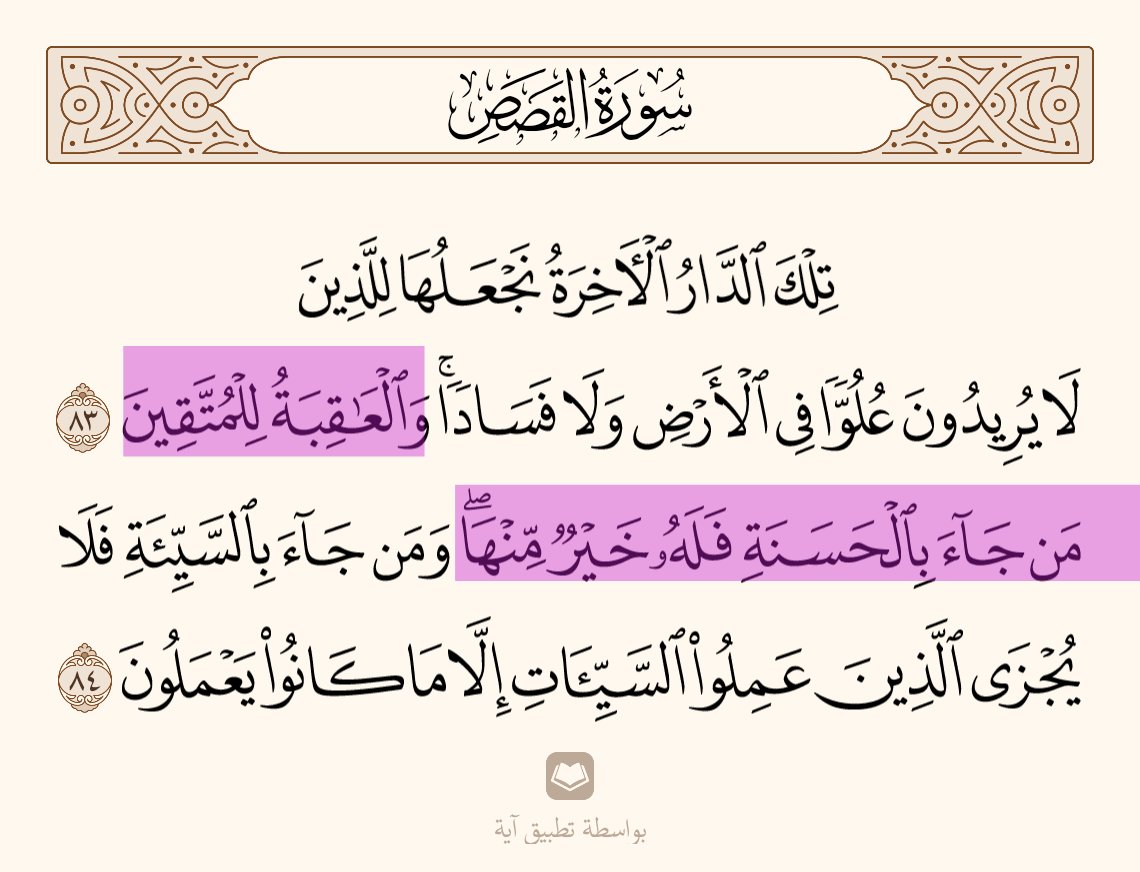 سُورَةُ القَصَصِ
تِلْكَ ٱلدَّارُ ٱلْأٓخِرَةُ نَجْعَلُهَا لِلَّذِينَ
لَا يُرِيدُونَ عُلُوًّا فِى ٱلْأَرْضِ وَلَا فَسَادًا ۚ وَٱلْعَـٰقِبَةُ لِلْمُتَّقِينَ ٨٣
مَن جَآءَ بِٱلْحَسَنَةِ فَلَهُۥ خَيْرٌ مِّنْهَا ۖ وَمَن جَآءَ بِٱلسَّيِّئَةِ فَلَا
يُجْزَى ٱلَّذِينَ عَمِلُوا۟ ٱلسَّيِّـَٔاتِ إِلَّا مَا كَانُوا۟ يَعْمَلُونَ ٨٤
بواسطة تطبيق آية